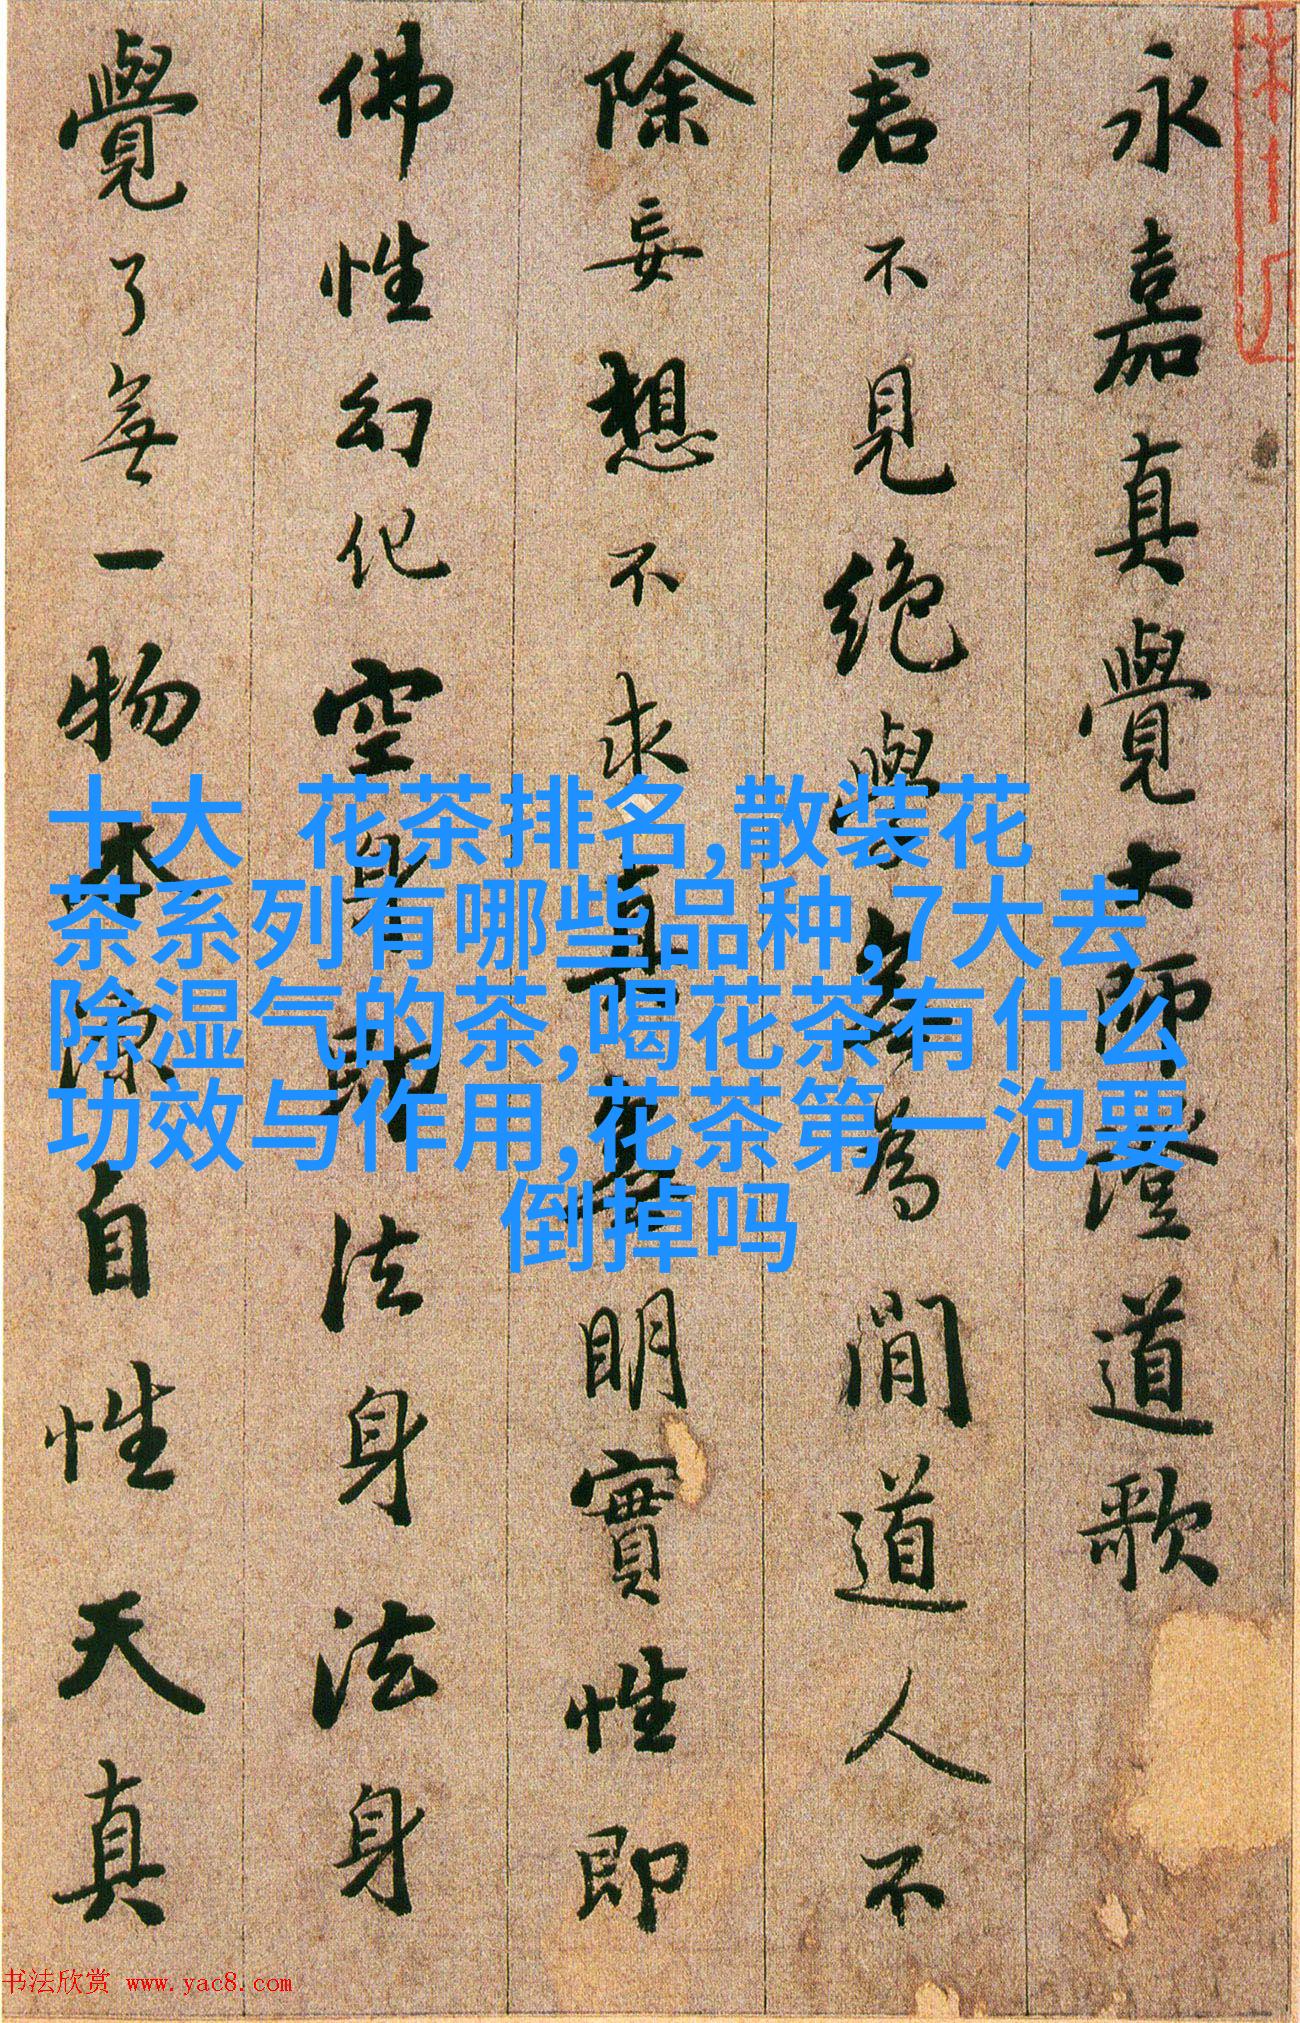 永嘉真覺大師證道歌
君不見絕學無為閒道人不
除妄想不求真無明實性即
佛性幻化空身即法身法身
覺了無一物本源自性天真
十大 花茶排名,散装花
茶系列有哪些品种,7大去
除湿气的茶,喝花茶有什么
功效与作用,花茶第一泡要
倒掉吗
书法欣赏 www.yac8.com